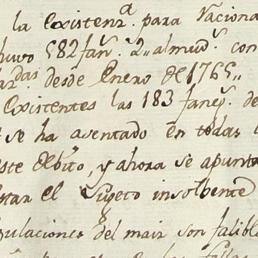 la Existenz.ª para Naciona
huvo 582 fan.ˢ 2,, almud.ˢ con
das desde Enero de 1765,,
Existentes las 183 faneg.ˢ de
se ha asentado en todas
este debito, y ahora se apunta
estar el Sugeto insolbente
pulaciones del maiz son falible